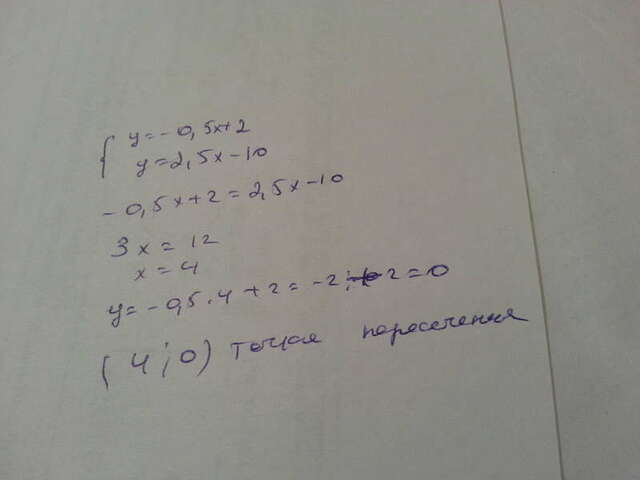 { y = -0,5x+2
y = 2,5x-10
-0,5x+2 = 2,5x-10
3x = 12
x = 4
y = -0,5·4+2 = -2+2 = 0
(4;0) точка пересечения